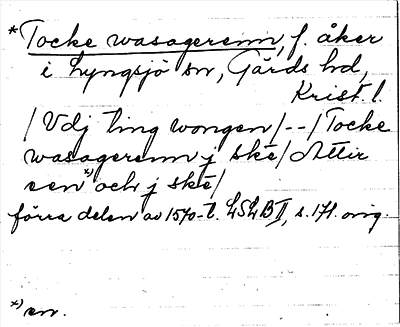 *Tocke wasagerenn, f. åker
i Lyngsjö sn, Gärds hd,
Krist l.
/Vdj ting wongen/--/Tocke
wasagerenn j skè/Attir
een*) och j skè/
förra delen av 1570-t. LSLB II, s. 171. orig.
*) en.